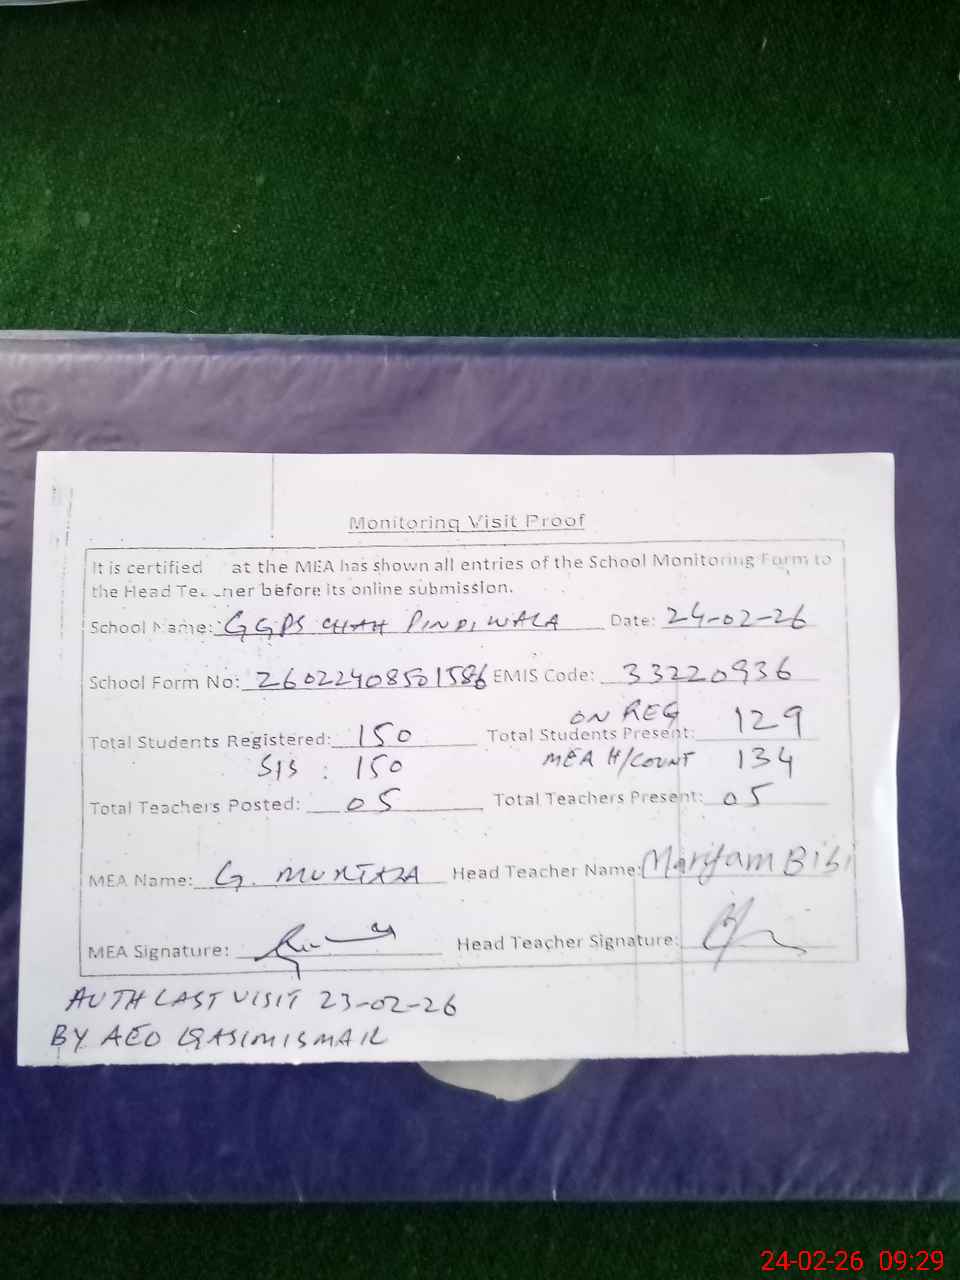 Monitoring Visit Proof
It is certified at the MEA has shown all entries of the School Monitoring Form to
the Head Te ner before its online submission.
School Name: GGPS CHAH PINDIWALA Date: 24-02-26
School Form No: 26022408501586 EMIS Code: 33220936
ON REG 129
Total Students Registered: 150 Total Students Present:
SIS : 150 MEA H/COUNT 134
Total Teachers Posted: 05 Total Teachers Present: 05
MEA Name: G. MURTAZA Head Teacher Name: Maryam Bibi
MEA Signature: Head Teacher Signature:
AUTH LAST VISIT 23-02-26
BY AEO QASIM ISMAIL
24-02-26 09:29